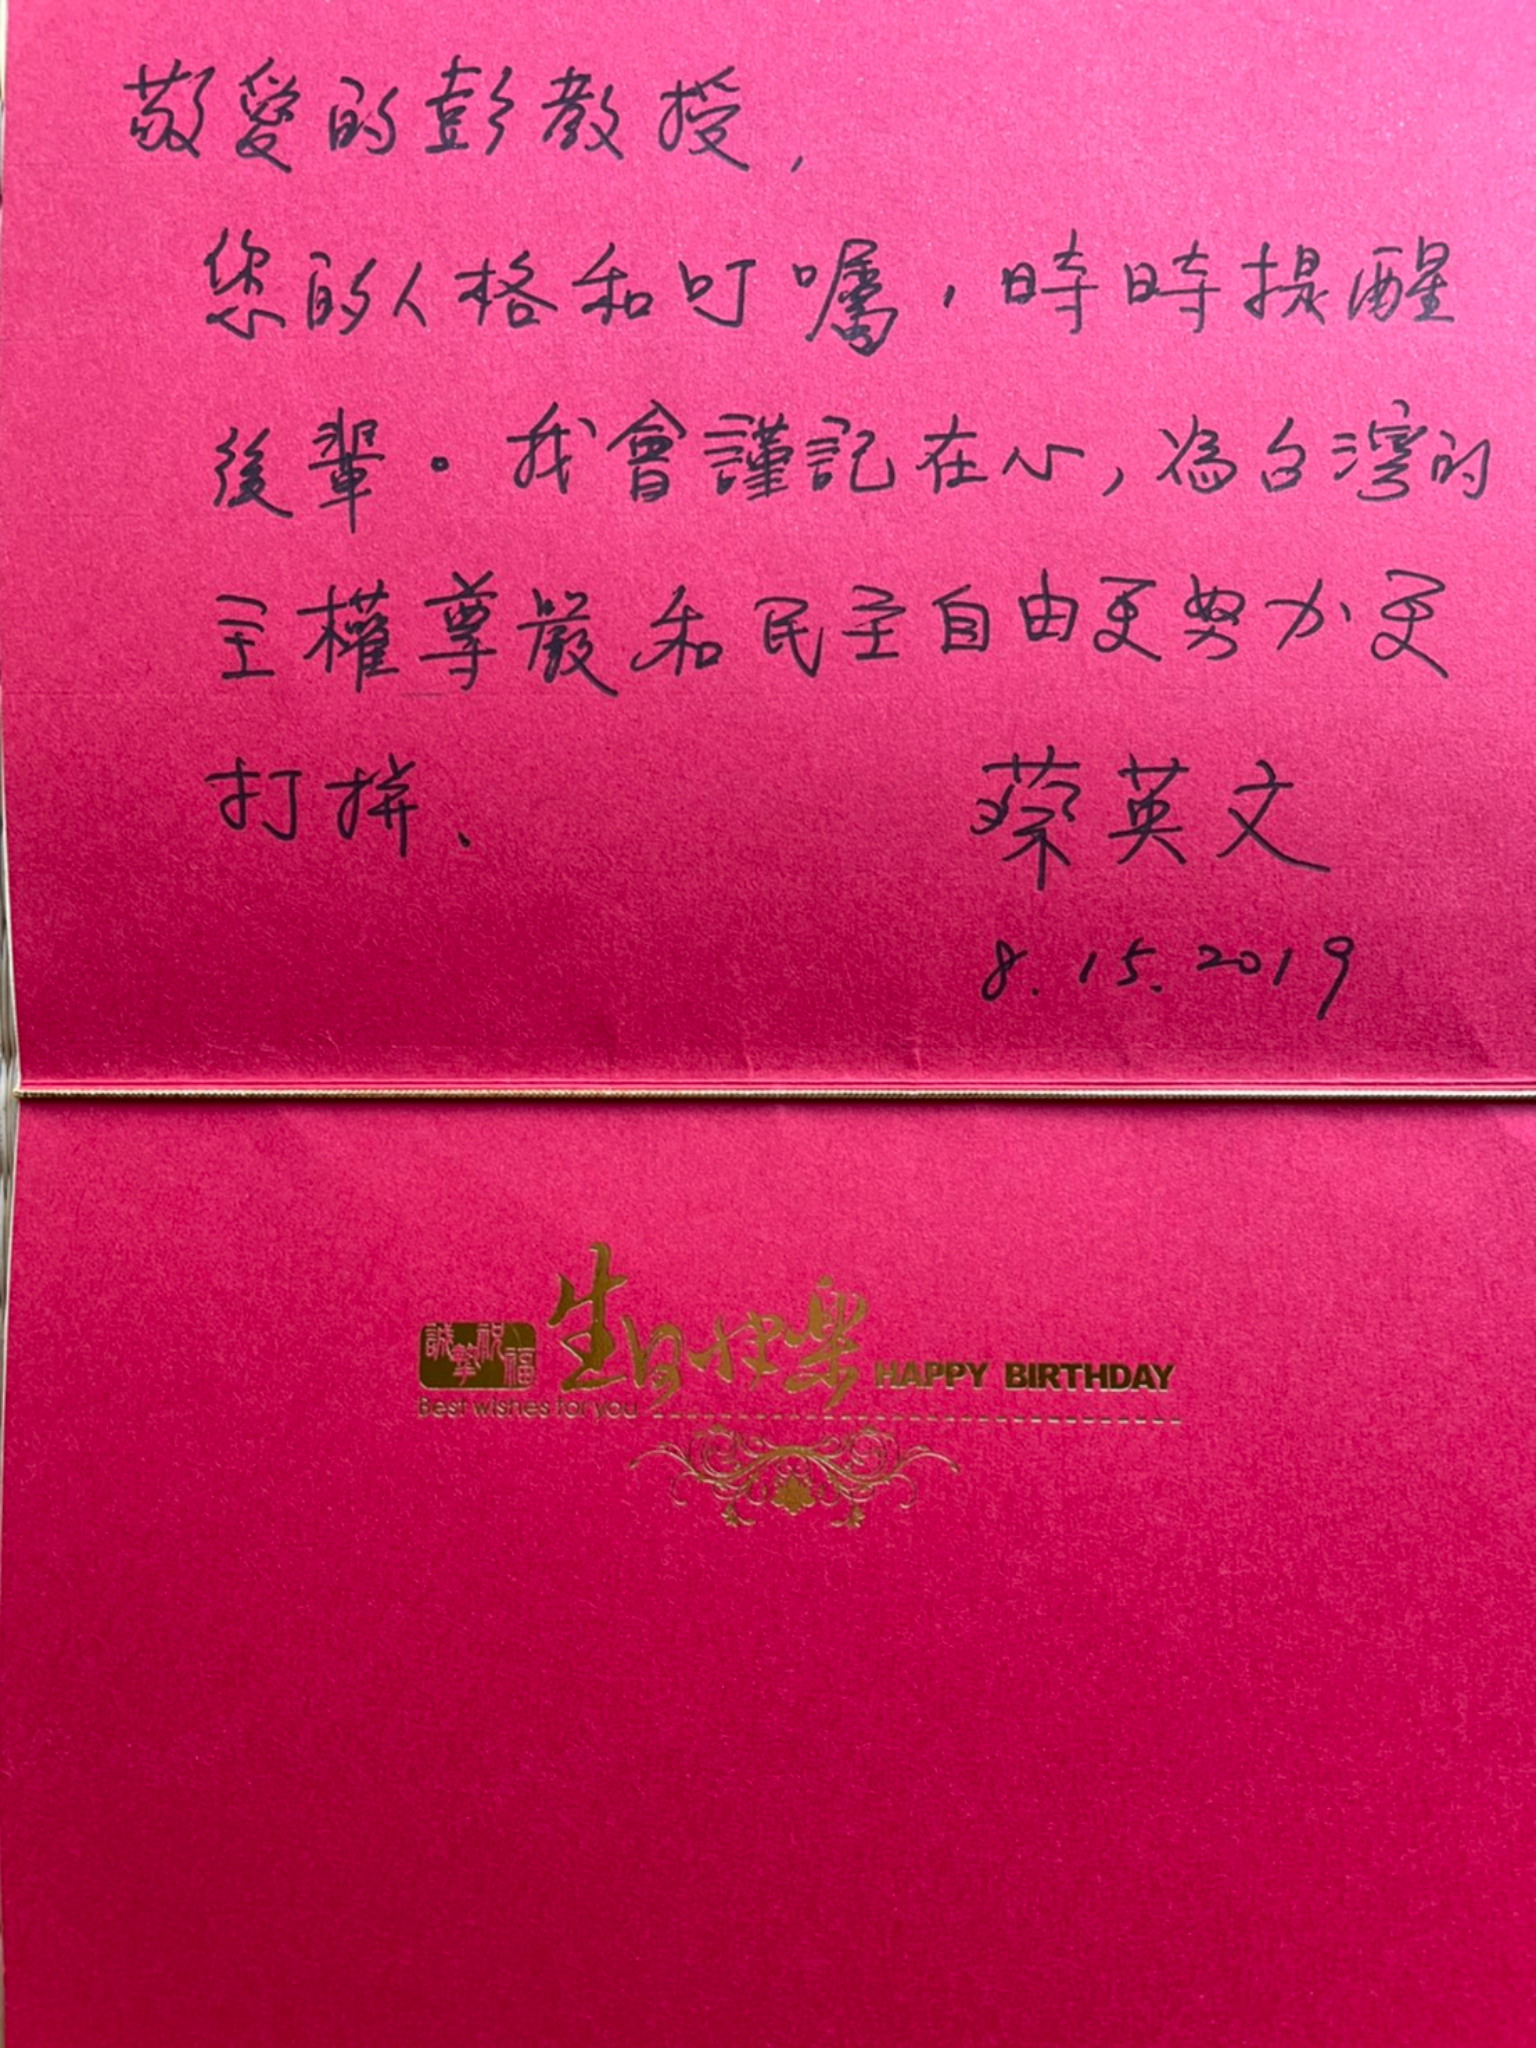 敬愛的彭教授，
您的人格和叮嚀，時時提醒
後輩。我會謹記在心，為台灣的
主權尊嚴和民主自由更努力更
打拚、
蔡英文
8.15.2019
誠摯祝福 生日快樂 HAPPY BIRTHDAY
Best wishes for you